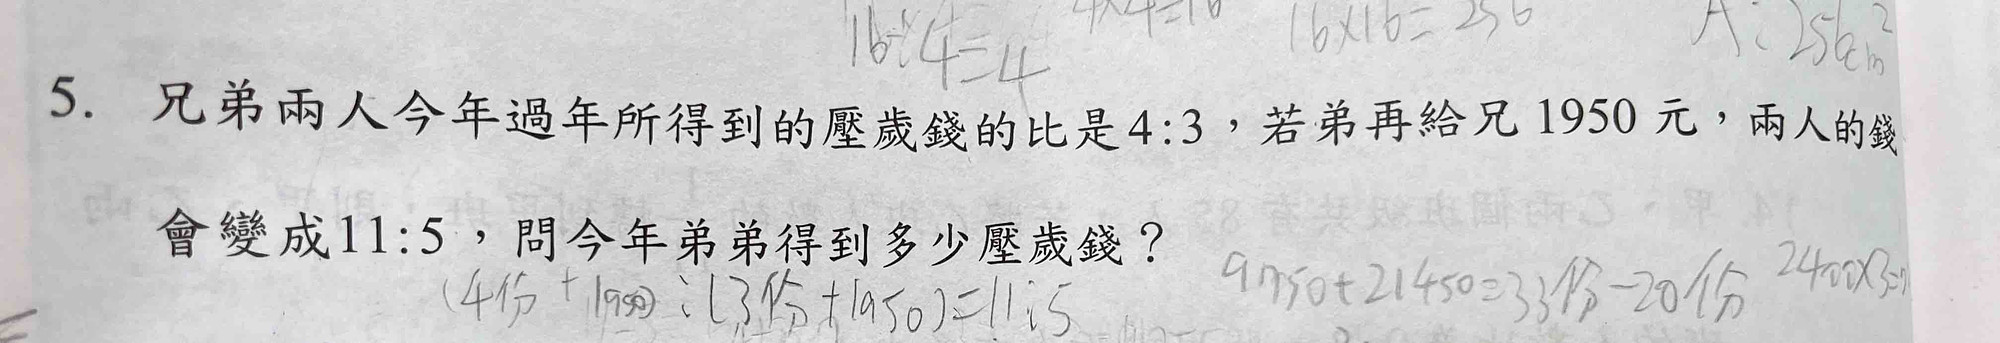 16÷4=4
16×16=256
A:256cm²
5. 兄弟兩人今年過年所得到的壓歲錢的比是4:3，若弟再給兄 1950 元，兩人的錢
會變成11:5，問今年弟弟得到多少壓歲錢？
(4份+1950):(3份+1950)=11:5
9750+21450=33份-20份